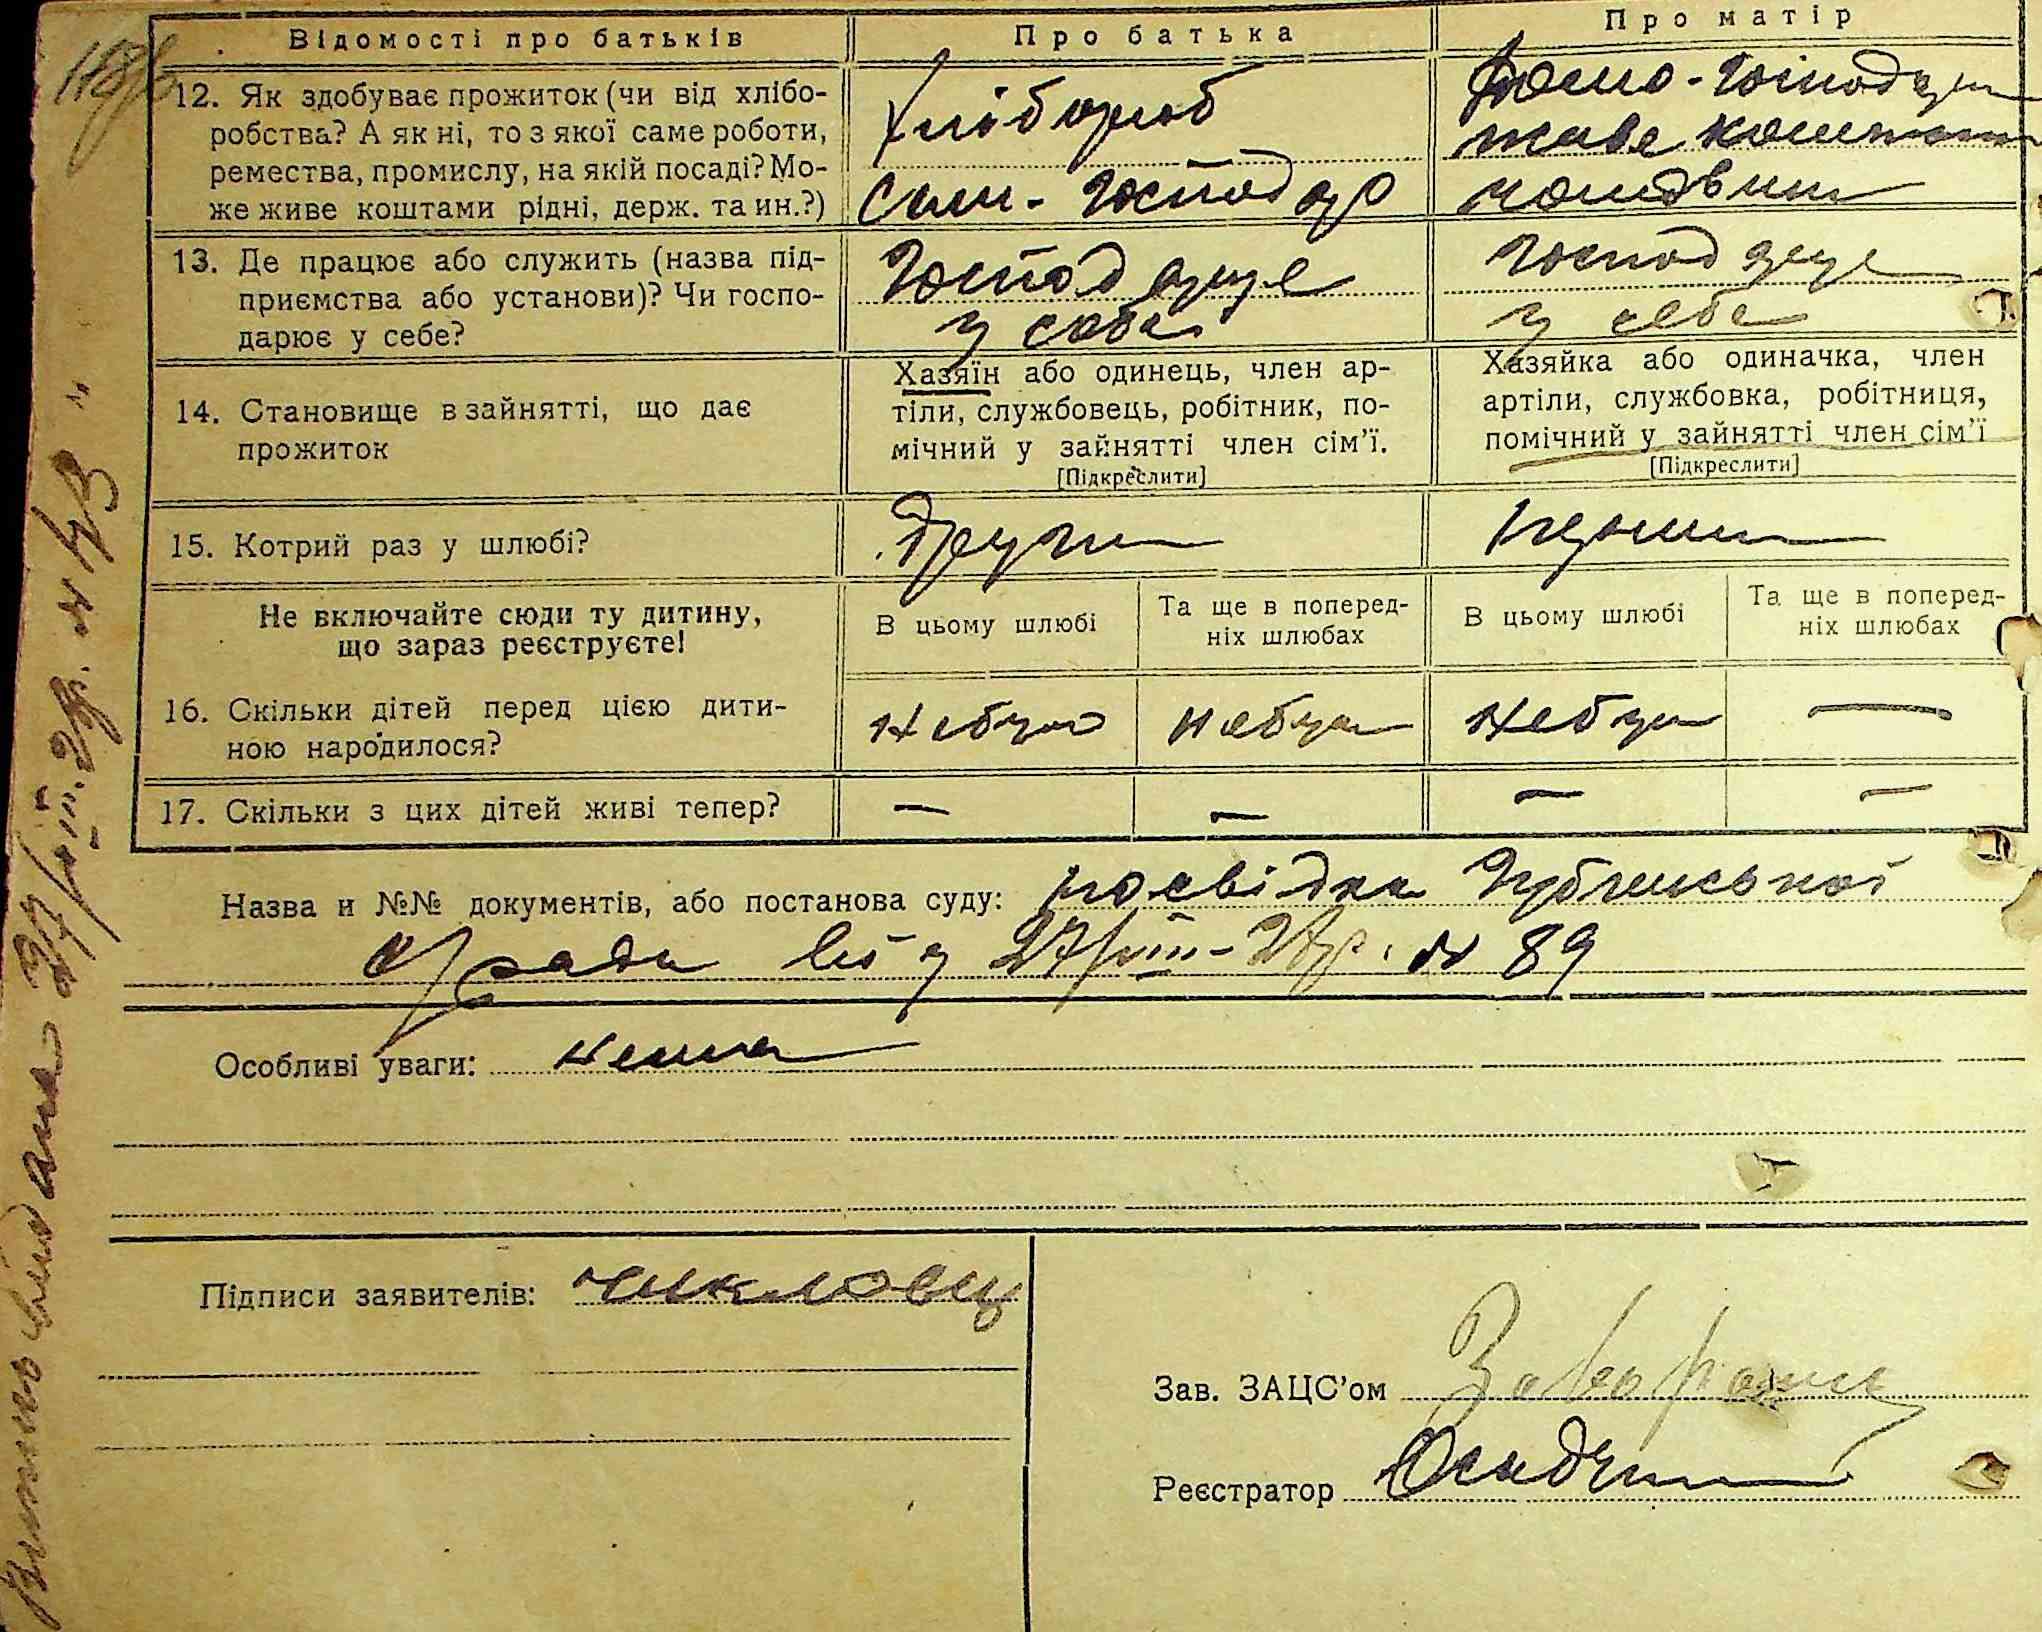 Відомості про батьків
Про батька
Про матір
12. Як здобуває прожиток (чи від хлібо-
робства? А як ні, то з якої саме роботи,
ремества, промислу, на якій посаді? Мо-
же живе коштами рідні, держ. та ин.?)
Хлібороб
Сам-Господар
Домо-Господарка
живе коштами
чоловіка
13. Де працює або служить (назва під-
приємства або установи)? Чи госпо-
дарює у себе?
Господарує
у себе
Господарує
у себе
14. Становище в зайнятті, що дає
прожиток
Хазяїн або одинець, член ар-
тіли, службовець, робітник, по-
мічний у зайнятті член сім'ї.
[Підкреслити]
Хазяйка або одиначка, член
артіли, службовка, робітниця,
помічний у зайнятті член сім'ї
[Підкреслити]
15. Котрий раз у шлюбі?
Другий
Перший
Не включайте сюди ту дитину,
що зараз реєструєте!
В цьому шлюбі
Та ще в поперед-
ніх шлюбах
В цьому шлюбі
Та ще в поперед-
ніх шлюбах
16. Скільки дітей перед цією дити-
ною народилося?
Небуло
Небуло
Небуло
—
17. Скільки з цих дітей живі тепер?
—
—
—
—
Назва и №№ документів, або постанова суду: посвідка
с/ради від 27/VIII-28р. № 89
Особливі уваги: нема
Підписи заявителів: Чикловец
Зав. ЗАЦС'ом
Реєстратор Осадчий
Випис видана 27/VIII.28р. № 43